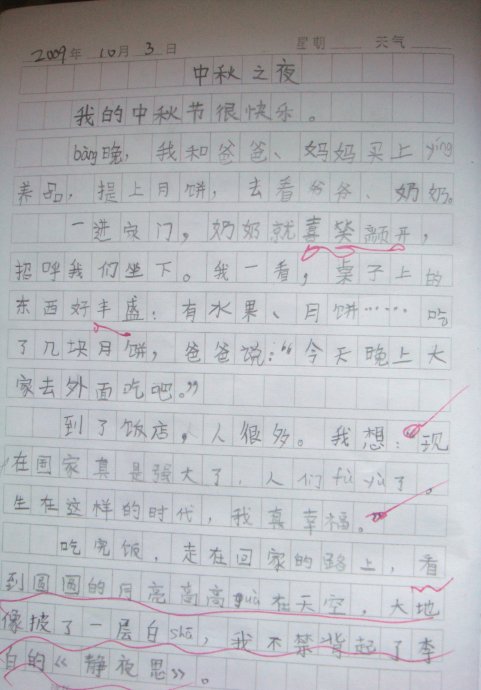 2009年 10月 3日 星期 天气
中秋之夜
我的中秋节很快乐。
bàng晚，我和爸爸、妈妈买上yíng
养品，提上月饼，去看爷爷、奶奶。
一进家门，奶奶就喜笑颜开，
招呼我们坐下。我一看，桌子上的
东西好丰盛：有水果、月饼……吃
了几块月饼，爸爸说：“今天晚上大
家去外面吃吧。”
到了饭店，人很多。我想：“现
在国家真是强大了，人们fù yù了。
生在这样的时代，我真幸福。”
吃完饭，走在回家的路上，看
到圆圆的月亮高高guà在天空，大地
像披了一层白shā，我不禁背起了李
白的《静夜思》。